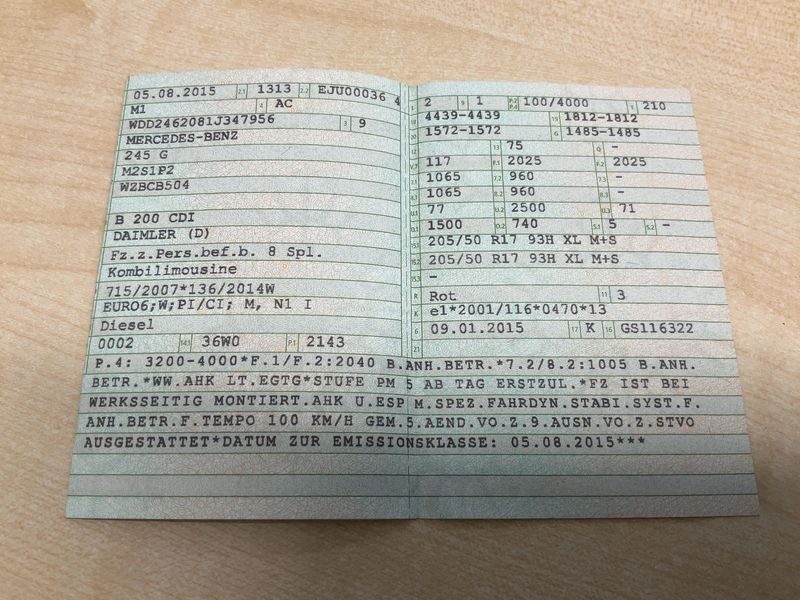 05.08.2015 2.1 1313 2.2 EJU00036 4
M1 4 AC
WDD2462081J347956 3 9
MERCEDES-BENZ
245 G
M2S1P2
WZBCB504
B 200 CDI
DAIMLER (D)
Fz.z.Pers.bef.b. 8 Spl.
Kombilimousine
715/2007*136/2014W
EURO6;W;PI/CI; M, N1 I
Diesel
0002 14.1 36W0 P.1 2143
L 2 9 1 P.2 P.4 100/4000 T 210
18 4439-4439 19 1812-1812
20 1572-1572 G 1485-1485
12 13 75 Q -
V.7 117 F.1 2025 F.2 2025
7.1 1065 7.2 960 7.3 -
8.1 1065 8.2 960 8.3 -
U.1 77 U.2 2500 U.3 71
O.1 1500 O.2 740 S.1 5 S.2 -
15.1 205/50 R17 93H XL M+S
15.2 205/50 R17 93H XL M+S
15.3 -
R Rot 11 3
K e1*2001/116*0470*13
6 09.01.2015 17 K 16 GS116322
21
P.4: 3200-4000*F.1/F.2:2040 B.ANH.BETR.*7.2/8.2:1005 B.ANH.
BETR.*WW.AHK LT.EGTG*STUFE PM 5 AB TAG ERSTZUL.*FZ IST BEI
WERKSSEITIG MONTIERT.AHK U.ESP M.SPEZ.FAHRDYN.STABI.SYST.F.
ANH.BETR.F.TEMPO 100 KM/H GEM.5.AEND.VO.Z.9.AUSN.VO.Z.STVO
AUSGESTATTET*DATUM ZUR EMISSIONSKLASSE: 05.08.2015***